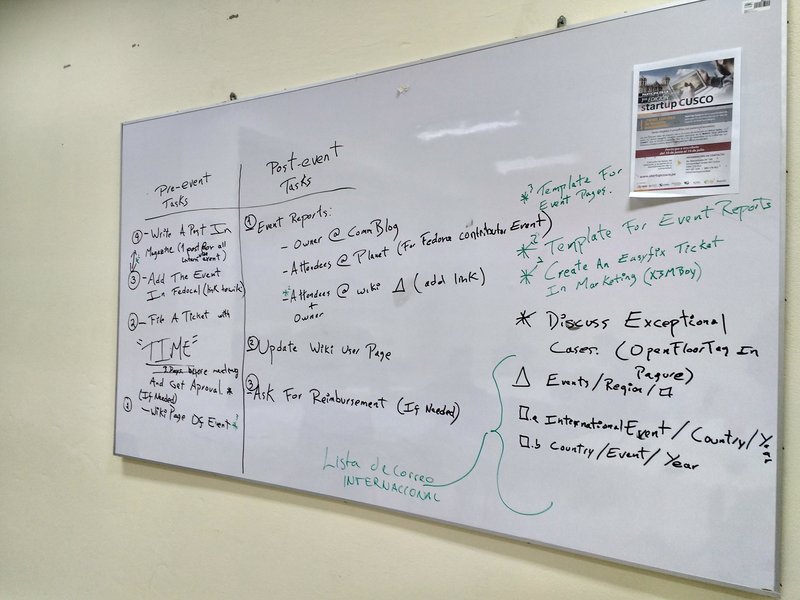 Pre-event
Tasks
④ - Write A Post In
Magazine (1 post for all
Latam event)
③ - Add The Event
In Fedocal (link to wiki)
② - File A Ticket with
"TIME"
before meeting
And Get Aproval *
(If Needed)
① - Wiki Page Of Event
Post-event
Tasks
① Event Reports:
- Owner @ CommBlog
- Attendees @ Planet (For Fedora contributor Event)
- Attendees @ wiki △ (add link)
+
Owner
② Update Wiki User Page
③ Ask For Reimbursement (If Needed)
Lista de Correo
INTERNACIONAL
startup CUSCO
*3 Template For
Event Pages.
*2 Template For Event Reports
*2 Create An Easyfix Ticket
In Marketing (X3MBoy)
* Discuss Exceptional
Cases: (OpenFloorTag In
Pagure)
△ Events/Region/□
□.a International Event/Country/Year
□.b Country/Event/Year